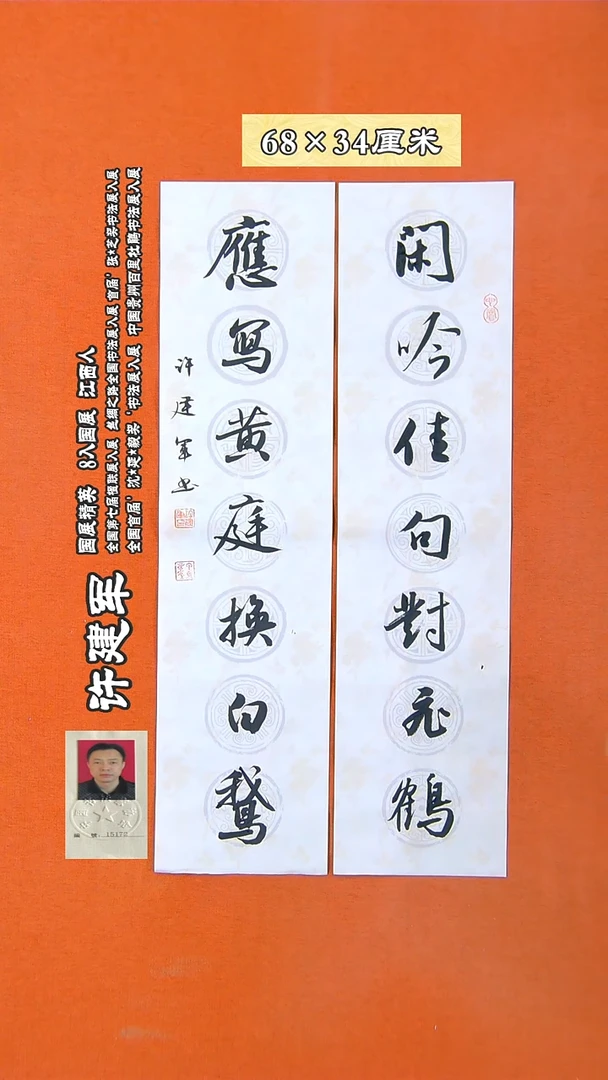 68×34厘米
閑吟佳句對鶴
應寫黄庭換白鵝
许建军书
国展精英 8入国展 江西人
全国第七届楹联展入展 丝绸之路全国书法展入展 首届'张★芝奖书法展入展
全国首届'沈★延★毅奖'书法展入展 中国贵州百里杜鹃书法展入展
许建军
编 号: 15172